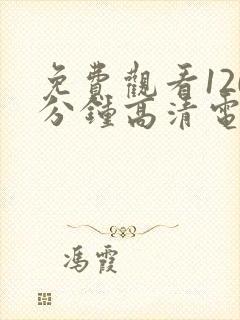 免費觀看120
分鐘高清電
馮霞